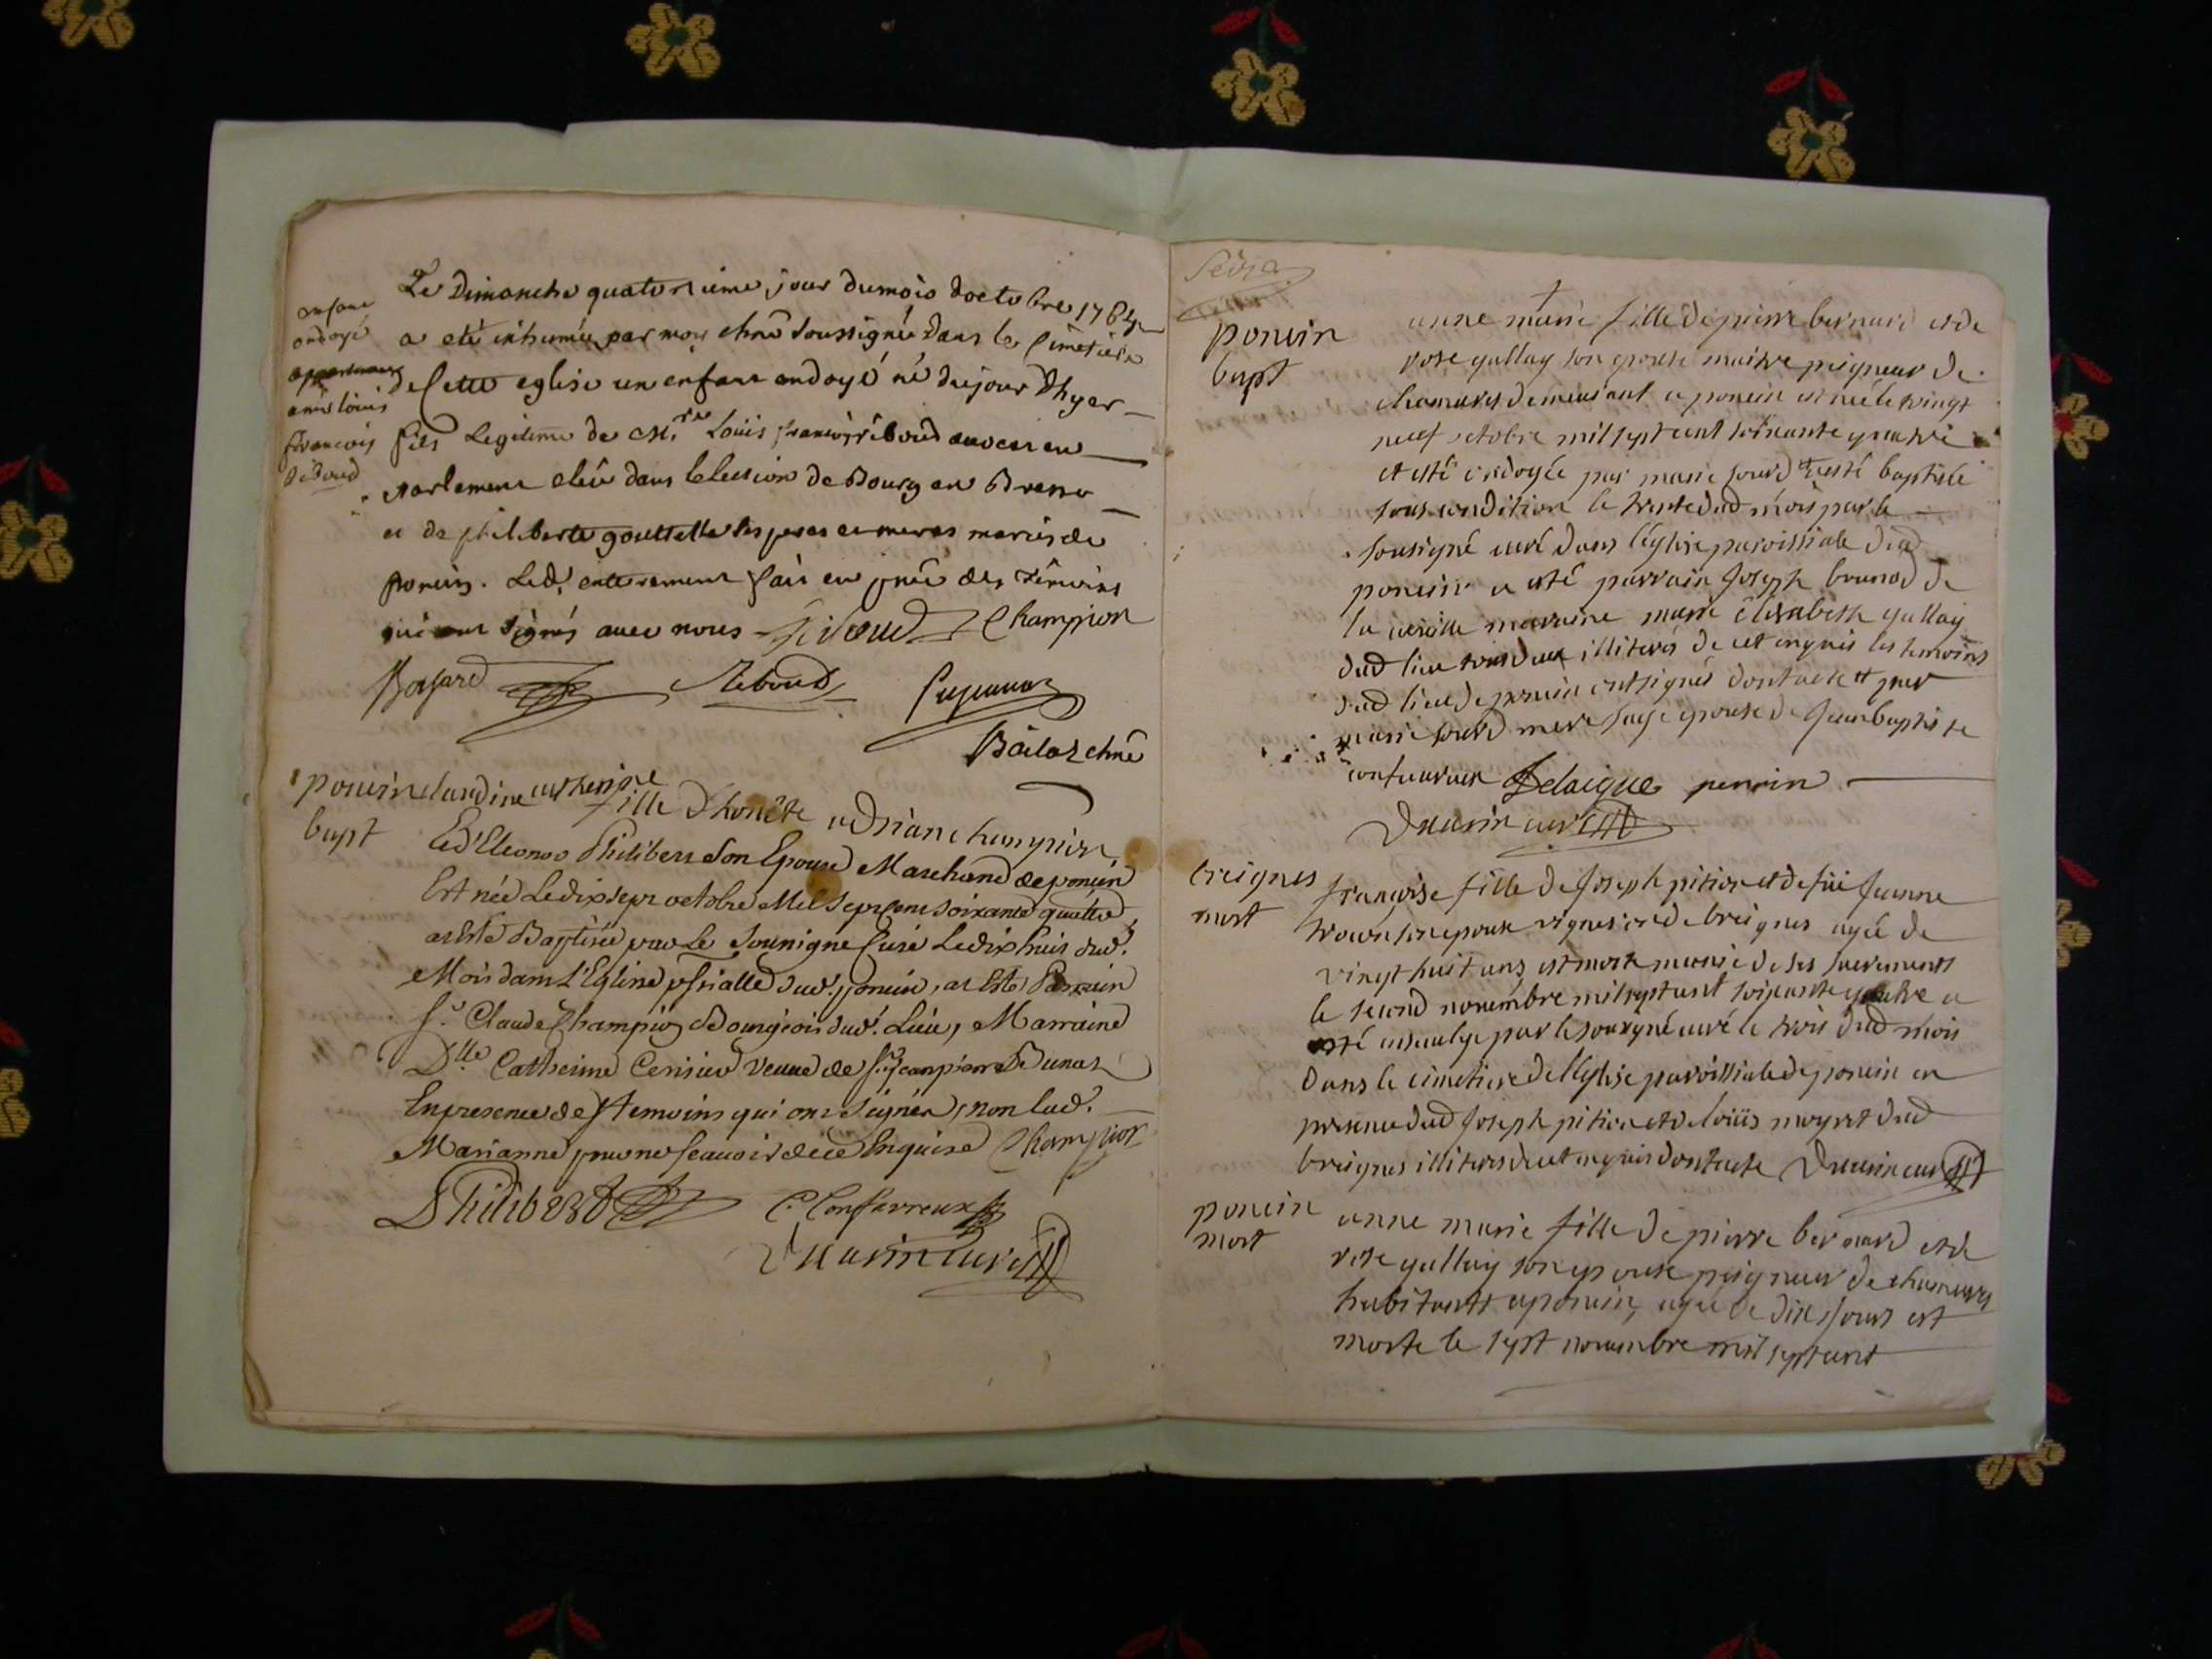 enfant
ondoyé
appartenant
a mr louis
françois
Riboud
Le Dimanche quatorzieme jour du mois doctobre 1764
a eté inhumée par moy chne soussigné dans le Cimetiere
de Cette eglise un enfant ondoyé né du jour Dhyer
fils Legitime de Mr. Louis françois riboud avocat en
parlement eleû dans lelection de Bourg en Bresse
et de philiberte gouttette ses peres et meres mariés de
poncin. Led. enterrement fait en pñce des témoins
qui ont signés avec nous Riboud Champion
Bossard Reboud
Bailas chne
poncin
bapt
claudine catherine fille d'honête adrian champion
Ed'Eleonor Philibert Son Epouse Marchand de poncin
Est née Le dix sept octobre Mil Sept Cent Soixante quattre
at Esté Baptisée par Le Sousigné Curé Le dix huit dud.
Mois dans L'Eglise pssialle dud. poncin, at Esté Parrain
Sr. Claude Champion Bourgeois dud. Lieu, Marraine
Dlle Catherine Cerisier veuve de Sr. jean pierre Brunas
En presence des temoins qui ont Signér, non lad.
Marianne pour ne scauoir de ce Enquise Champion
Philibert C. Confavreux
Drusin curé
poncin
bapt
anne marie fille de pierre bernard et de
rose gallay son epouse maitre peigneur de
chamures demeurant a poncin est née le vingt
neuf octobre mil sept cent soixante quatre
et esté ondoyée par marie sourd et esté baptisée
sous condition le trente dud mois par le
sousigné curé dans l'église paroissiale dud
poncin a esté parrain joseph brunod de
la marraine marie elisabeth gallay
dud lieu tous deux illiterés de cet enquis les temoins
dud lieu de poncin ont signés dont acte et par
marie sourd mere sage epouse de jean baptiste
confavreux Delaigue perrin
Drusin curé
breignes
mort
françoise fille de joseph pition et de füe jeanne
son epouse vigneron de breignes agée de
vingt huit ans est morte munie de ses sacrements
le second novembre mil sept cent soixante quatre a
esté ensevelye par le sousigné curé le trois dud mois
dans le cimetiere de l'église paroissiale de poncin en
presence dud joseph pition et de loüis moyret dud
breignes illiterés de cet enquis dont acte Drusin curé
poncin
mort
anne marie fille de pierre bernard et de
rose gallay son epouse peigneur de chamures
habitants a poncin, agée de dix jours est
morte le sept novembre mil sept cent